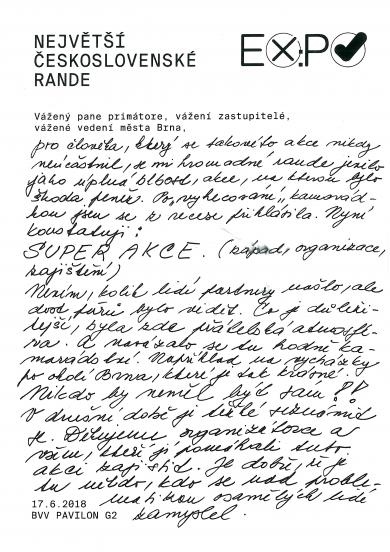 NEJVĚTŠÍ
ČESKOSLOVENSKÉ
RANDE
EXPO
Vážený pane primátore, vážení zastupitelé,
vážené vedení města Brna,
pro člověka, který se takového akce nikdy
nezúčastnil, se mi hromadné rande jevilo
jako úplná blbost, akce, na kterou bylo
škoda peněz. Po „vyhecování" kamarád-
kou jsem se k recese přihlásila. Nyní
konstatuji:
SUPER AKCE. (nápad, organizace,
zajištění)
Nevím, kolik lidí partnery našlo, ale
dost párů bylo vidět. Co je důleži-
tější, byla zde přátelská atmosfé-
ra. A navázalo se tu hodně ka-
marádství. Například na vycházky
po okolí Brna, které je tak krásné.
Nikdo by neměl být sám!!
V dnešní době je těžké seznámit
se. Děkujeme organizátorce a
vám, kteří jí pomáhali tuto
akci zajistit. Je dobře, že je
tu někdo, kdo se nad proble-
matikou osamělých lidí
zamyslel.
17.6.2018
BVV PAVILON G2